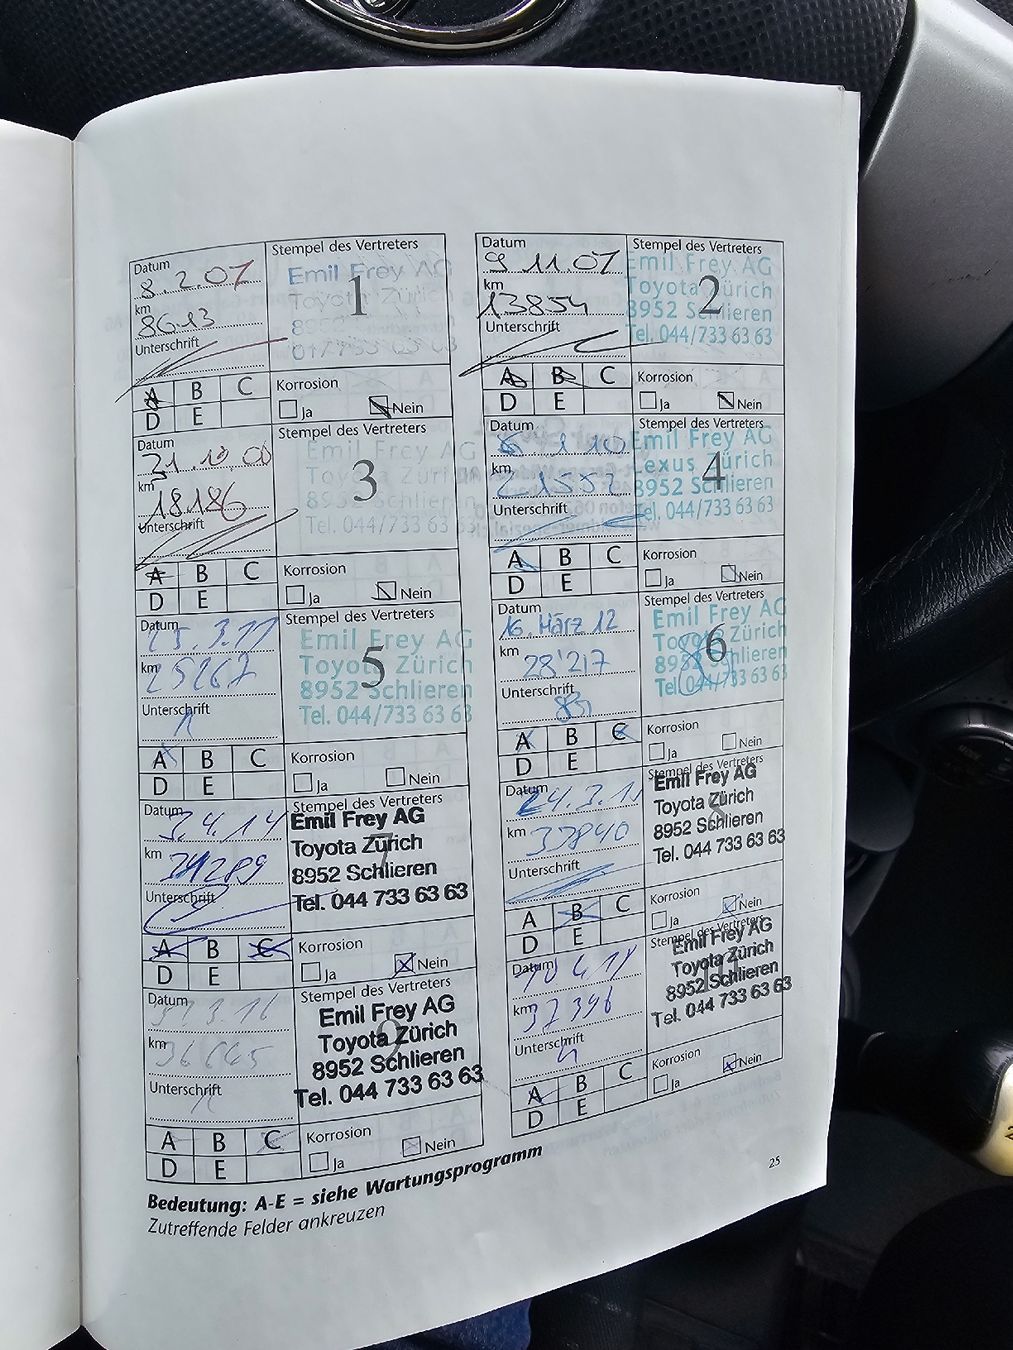 Datum
8.2.07
km
8613
Unterschrift
Stempel des Vertreters
Emil Frey AG
Toyota Zürich
1
A B C
D E
Korrosion
Ja Nein
Datum
9 11.07
km
13854
Unterschrift
Stempel des Vertreters
Emil Frey AG
Toyota Zürich
8952 Schlieren
Tel. 044/733 63 63
2
A B C
D E
Korrosion
Ja Nein
Datum
km
18186
Unterschrift
Stempel des Vertreters
Emil Frey AG
Toyota Zürich
8952 Schlieren
Tel. 044/733 63 63
3
A B C
D E
Korrosion
Ja Nein
Datum
6 1 10
km
21552
Unterschrift
Stempel des Vertreters
Emil Frey AG
Lexus Zürich
8952 Schlieren
Tel. 044/733 63 63
4
A B C
D E
Korrosion
Ja Nein
Datum
25.3.11
km
25267
Unterschrift
Stempel des Vertreters
Emil Frey AG
Toyota Zürich
8952 Schlieren
Tel. 044/733 63 63
5
A B C
D E
Korrosion
Ja Nein
Datum
16. März 12
km
28'217
Unterschrift
Stempel des Vertreters
Emil Frey AG
Toyota Zürich
8952 Schlieren
Tel. 044/733 63 63
6
A B C
D E
Korrosion
Ja Nein
Datum
3.4.14
km
31289
Unterschrift
Stempel des Vertreters
Emil Frey AG
Toyota Zürich
8952 Schlieren
Tel. 044 733 63 63
7
A B C
D E
Korrosion
Ja Nein
Datum
km
33840
Unterschrift
Stempel des Vertreters
Emil Frey AG
Toyota Zürich
8952 Schlieren
Tel. 044 733 63 63
A B C
D E
Korrosion
Ja Nein
Datum
km
Unterschrift
Stempel des Vertreters
Emil Frey AG
Toyota Zürich
8952 Schlieren
Tel. 044 733 63 63
9
A B C
D E
Korrosion
Ja Nein
Datum
km
37396
Unterschrift
Stempel des Vertreters
Emil Frey AG
Toyota Zürich
8952 Schlieren
Tel. 044 733 63 63
A B C
D E
Korrosion
Ja Nein
Bedeutung: A-E = siehe Wartungsprogramm
Zutreffende Felder ankreuzen
25